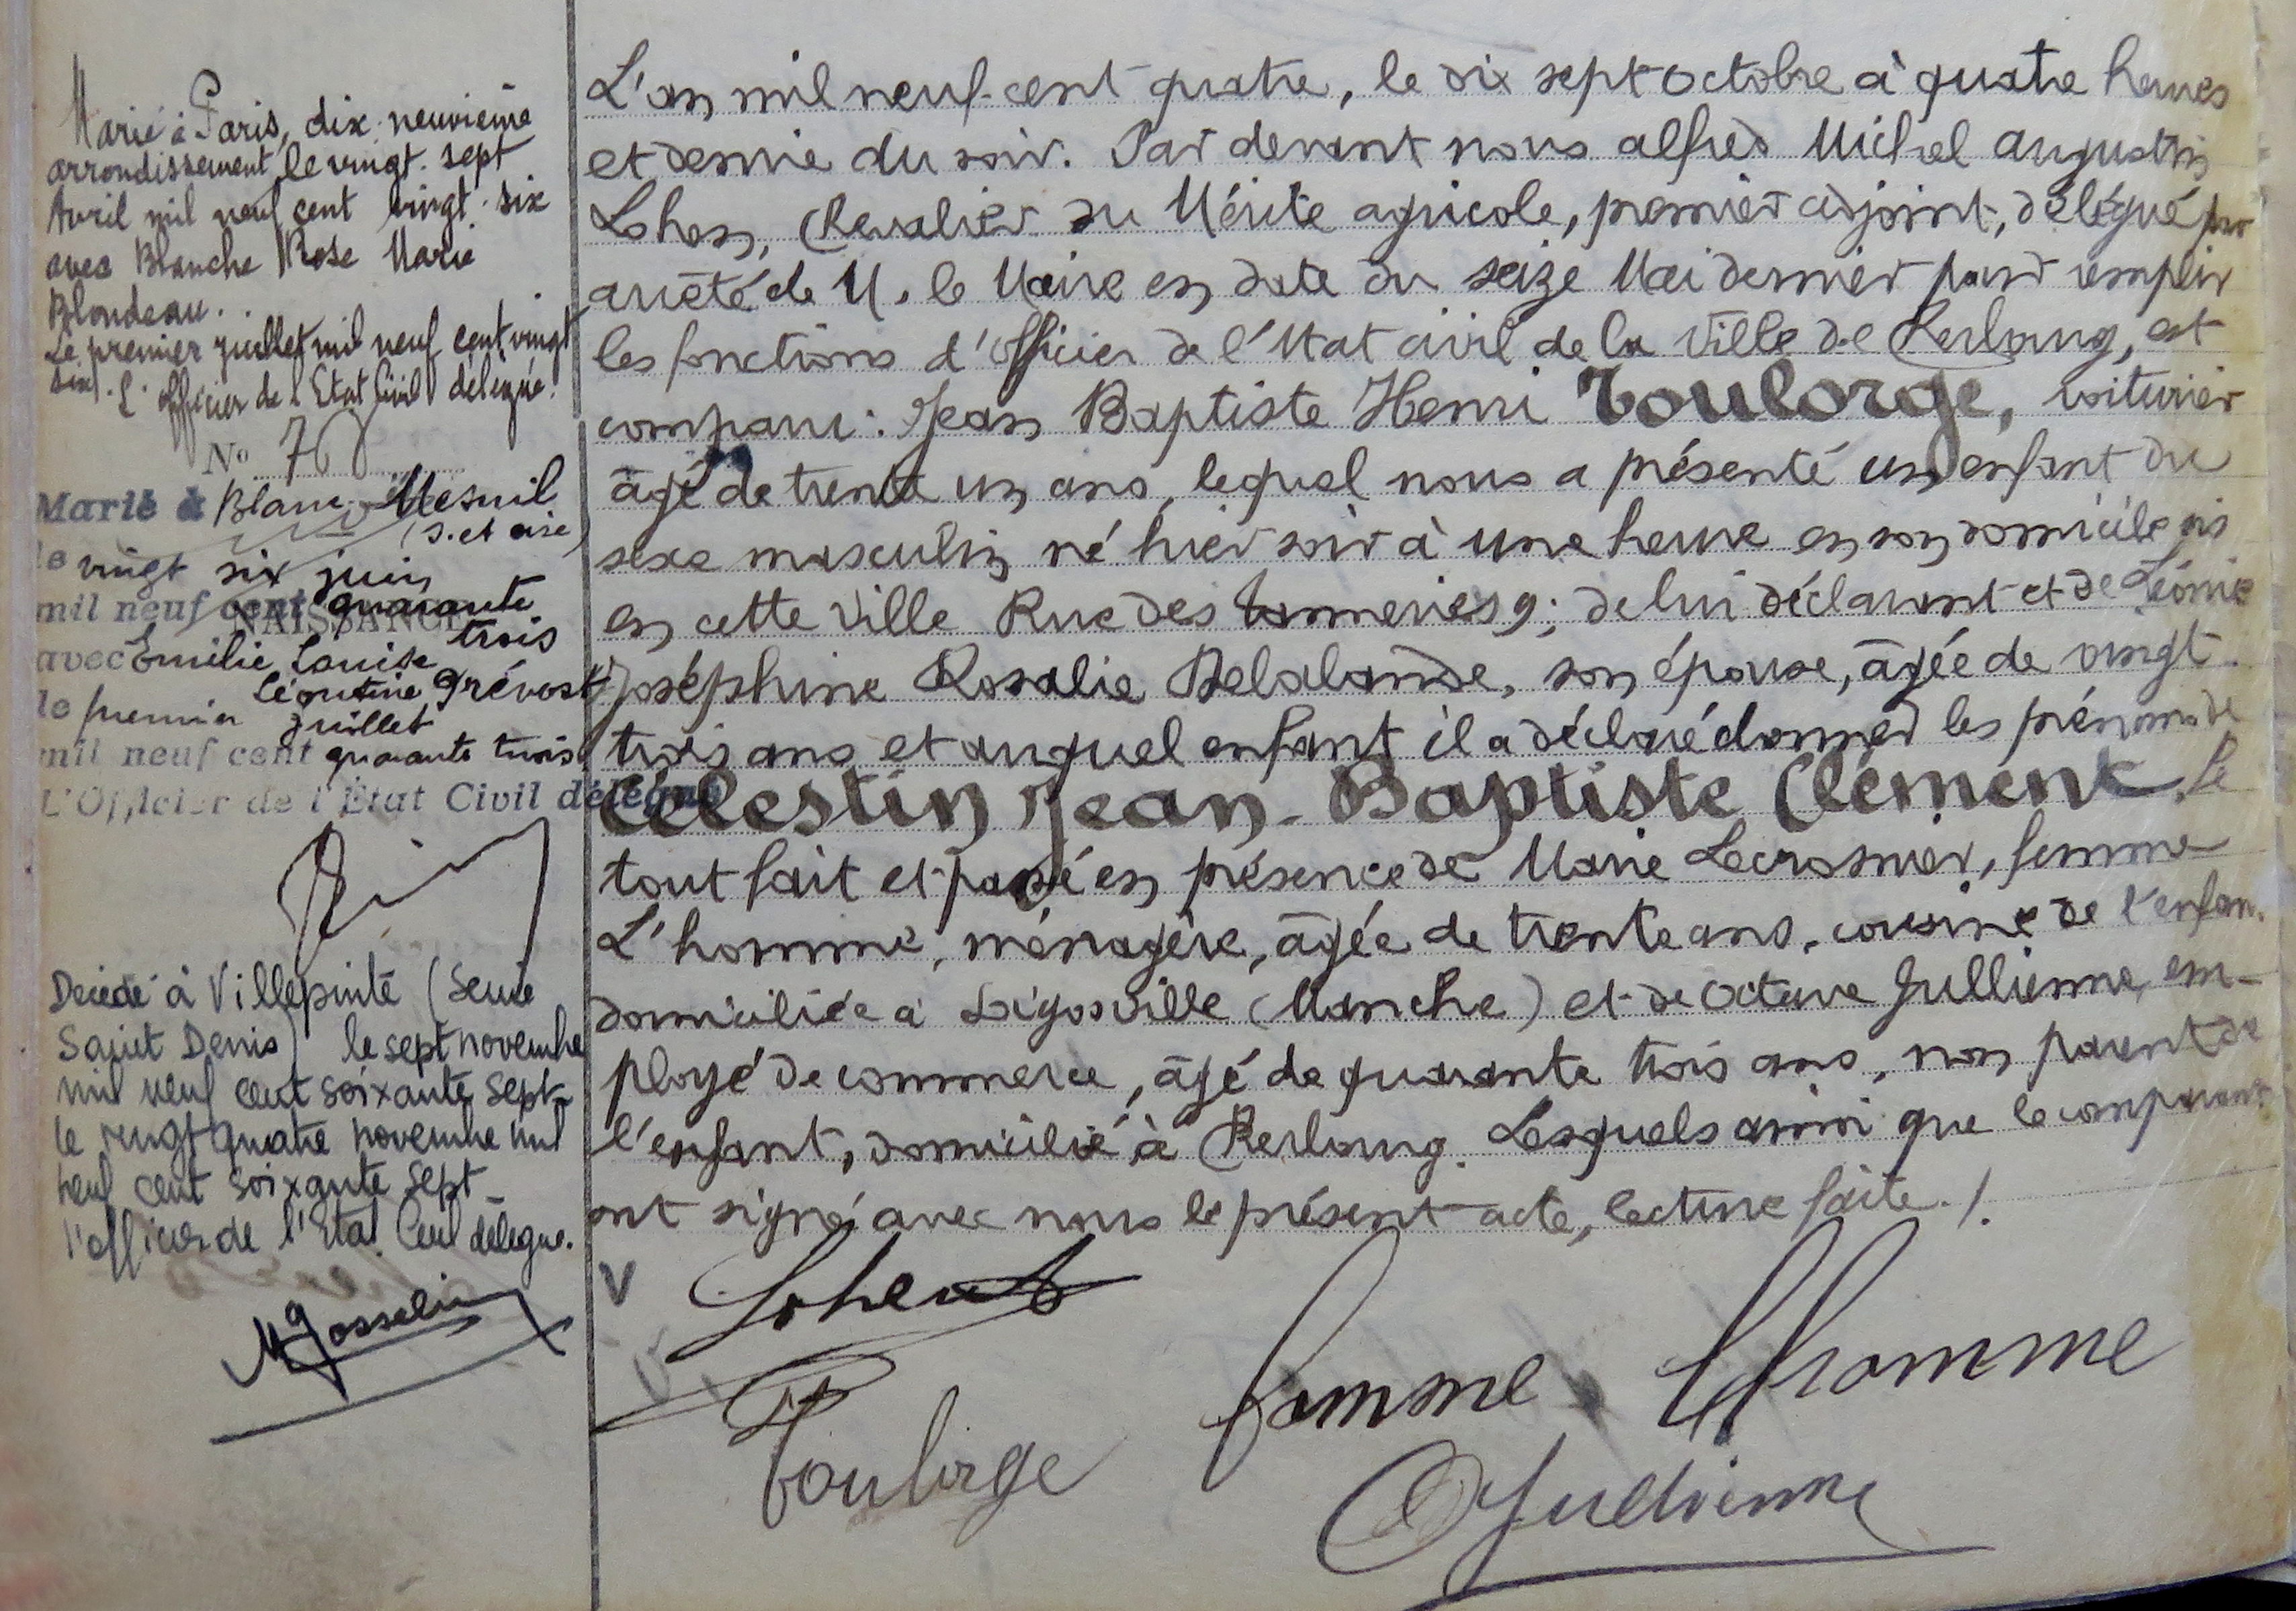 Marié à Paris, dix-neuvième
arrondissement, le vingt-sept
Avril mil neuf cent vingt-six
avec Blanche Rose Marie
Blondeau.
Le premier juillet mil neuf cent vingt
six. L'officier de l'Etat Civil délégué.
No 78
Marié à Blanc-Mesnil
(S. et oise)
le vingt six juin
mil neuf cent quarante
NAISSANCE
trois
avec Emilie Louise
Léontine Prévost
le premier juillet
mil neuf cent quarante trois
L'Officier de l'Etat Civil délégué
Décédé à Villepinte (Seine
Saint Denis) le sept novembre
mil neuf cent soixante sept
le vingt quatre novembre mil
neuf cent soixante sept
l'officier de l'Etat Civil délégué.
M Gosselin
L'an mil neuf-cent quatre, le dix sept octobre à quatre heures
et demie du soir. Par devant nous alfred Michel augustin
Lohen, Chevalier du Mérite agricole, premier adjoint, délégué par
arrêté de M. le Maire en date du seize Mai dernier pour remplir
les fonctions d'officier de l'Etat civil de la ville de Cherbourg, est
comparu : Jean Baptiste Henri Toulorge, voiturier
âgé de trente un ans, lequel nous a présenté un enfant du
sexe masculin né hier soir à une heure en son domicile sis
en cette ville Rue des tanneries 9; de lui déclarant et de Léonie
Joséphine Rosalie Delalande, son épouse, âgée de vingt
trois ans et auquel enfant il a déclaré donner les prénoms de
Célestin Jean-Baptiste Clément. Le
tout fait et passé en présence de Marie Lecrosnier, femme
L'homme, ménagère, âgée de trente ans, cousine de l'enfant
domiciliée à Digosville (Manche) et de Octave Jullienne, em-
ployé de commerce, âgé de quarante trois ans, non parent de
l'enfant, domicilié à Cherbourg. Lesquels ainsi que le comparant
ont signé avec nous le présent acte, lecture faite./.
V Lohen
femme Lhomme
Toulorge
O Jullienne